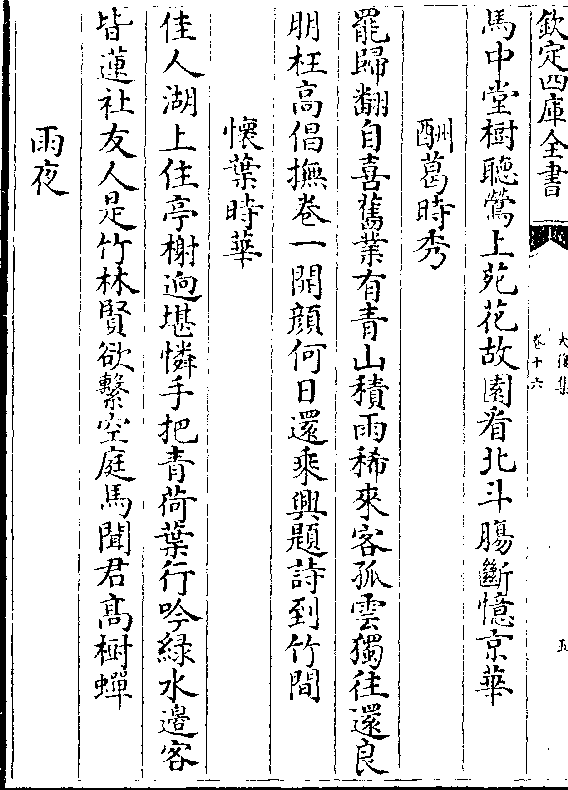 欽定四庫全書
大復集
卷十六
五
馬中堂樹聽鶯上苑花故園看北斗腸斷憶京華
酬葛時秀
罷歸翻自喜舊業有青山積雨稀來客孤雲獨往還良
朋枉高倡撫卷一開顔何日還乘興題詩到竹間
懷葉時華
佳人湖上住亭榭逈堪憐手把青荷葉行吟緑水邉客
皆蓮社友人是竹林賢欲繫空庭馬聞君髙樹蟬
雨夜